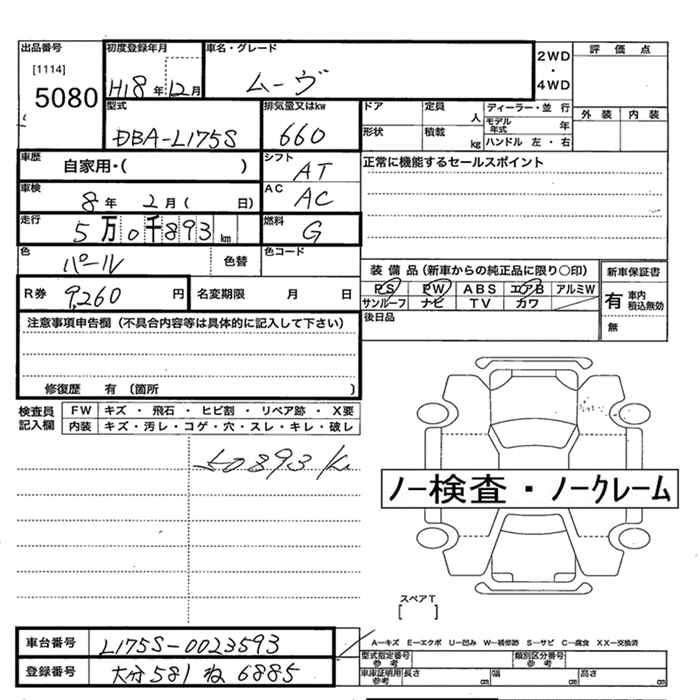 出品番号
[1114]
5080
初度登録年月
H18年12月
車名・グレード
ムーヴ
2WD
・
4WD
評価点
外装 内装
型式
DBA-L175S
排気量又はkw
660
ドア
定員
人
形状
積載
kg
ディーラー・並行
モデル年式
年
ハンドル 左・右
車歴
自家用・( )
シフト
AT
正常に機能するセールスポイント
車検
8年2月( 日)
AC
AC
走行
5万0千893km
燃料
G
色
パール
色替
色コード
R券
9,260円
名変期限 月 日
装備品(新車からの純正品に限り○印)
PS PW ABS エアB アルミW
サンルーフ ナビ TV カワ
新車保証書
有 車内積込無効
無
後日品
注意事項申告欄(不具合内容等は具体的に記入して下さい)
修復歴 有(箇所 )
検査員記入欄
FW キズ・飛石・ヒビ割・リペア跡・X要
内装 キズ・汚レ・コゲ・穴・スレ・キレ・破レ
50893K
ノー検査・ノークレーム
スペアT
[ ]
車台番号
L175S-0023593
登録番号
大分581ね6885
A―キズ E―エクボ U―凹み W―補修跡 S―サビ C―腐食 XX―交換済
型式指定番号
参考
類別区分番号
参考
車庫証明用
参考
長さ
cm
幅
cm
高さ
cm